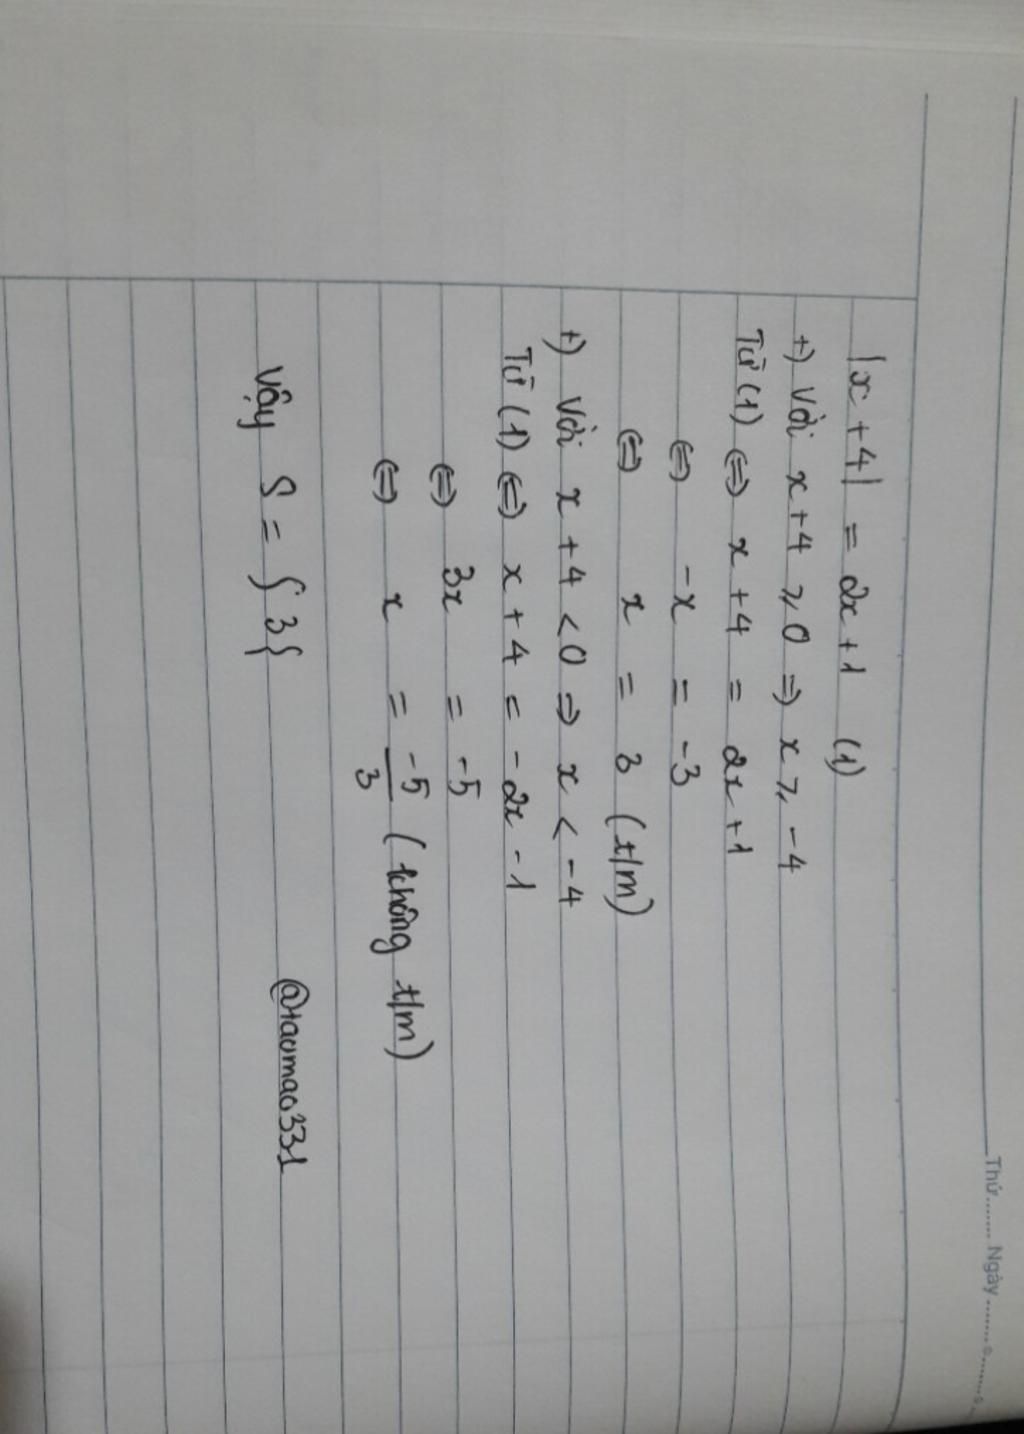 Thứ........ Ngày ........
|x + 4| = 2x + 1 (1)
+) Với x + 4 ⩾ 0 ⇒ x ⩾ -4
Từ (1) ⇔ x + 4 = 2x + 1
⇔ -x = -3
⇔ x = 3 (t/m)
+) Với x + 4 < 0 ⇒ x < -4
Từ (1) ⇔ x + 4 = -2x - 1
⇔ 3x = -5
⇔ x = -5/3 (không t/m)
Vậy S = {3}
@taomao331